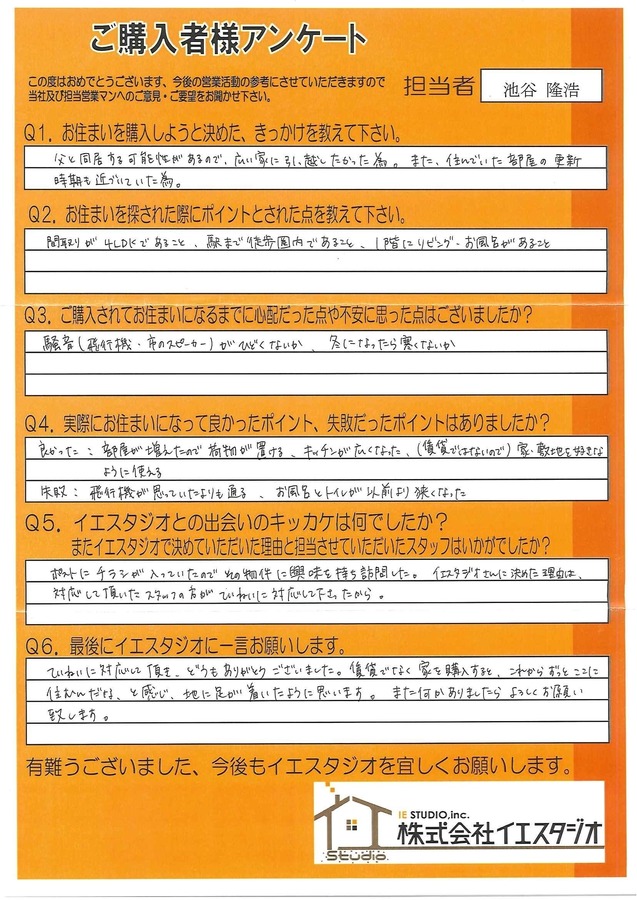 ご購入者様アンケート
この度はおめでとうございます、今後の営業活動の参考にさせていただきますので
当社及び担当営業マンへのご意見・ご要望をお聞かせ下さい。
担当者 池谷 隆浩
Q1. お住まいを購入しようと決めた、きっかけを教えて下さい。
父と同居する可能性があるので、広い家に引っ越したかった為。また、住んでいた部屋の更新
時期も近づいていた為。
Q2. お住まいを探された際にポイントとされた点を教えて下さい。
間取りが4LDKであること、駅まで徒歩圏内であること、1階にリビング・お風呂があること
Q3. ご購入されてお住まいになるまでに心配だった点や不安に思った点はございましたか?
騒音(飛行機・市のスピーカー)がひどくないか、冬になったら寒くないか
Q4. 実際にお住まいになって良かったポイント、失敗だったポイントはありましたか?
良かった:部屋が増えたので荷物が置ける、キッチンが広くなった、(賃貸ではないので)家・敷地を好きな
ように使える
失敗:飛行機が思っていたよりも通る、お風呂とトイレが以前より狭くなった
Q5. イエスタジオとの出会いのキッカケは何でしたか?
またイエスタジオで決めていただいた理由と担当させていただいたスタッフはいかがでしたか?
ポストにチラシが入っていたのでその物件に興味を持ち訪問した。イエスタジオさんに決めた理由は、
対応して頂いたスタッフの方がていねいに対応して下さったから。
Q6. 最後にイエスタジオに一言お願いします。
ていねいに対応して頂き、どうもありがとうございました。賃貸でなく家を購入すると、これからずっとここに
住むんだな、と感じ、地に足が着いたように思います。また何かありましたらよろしくお願い
致します。
有難うございました、今後もイエスタジオを宜しくお願いします。
IE STUDIO,inc.
株式会社イエスタジオ
Studio